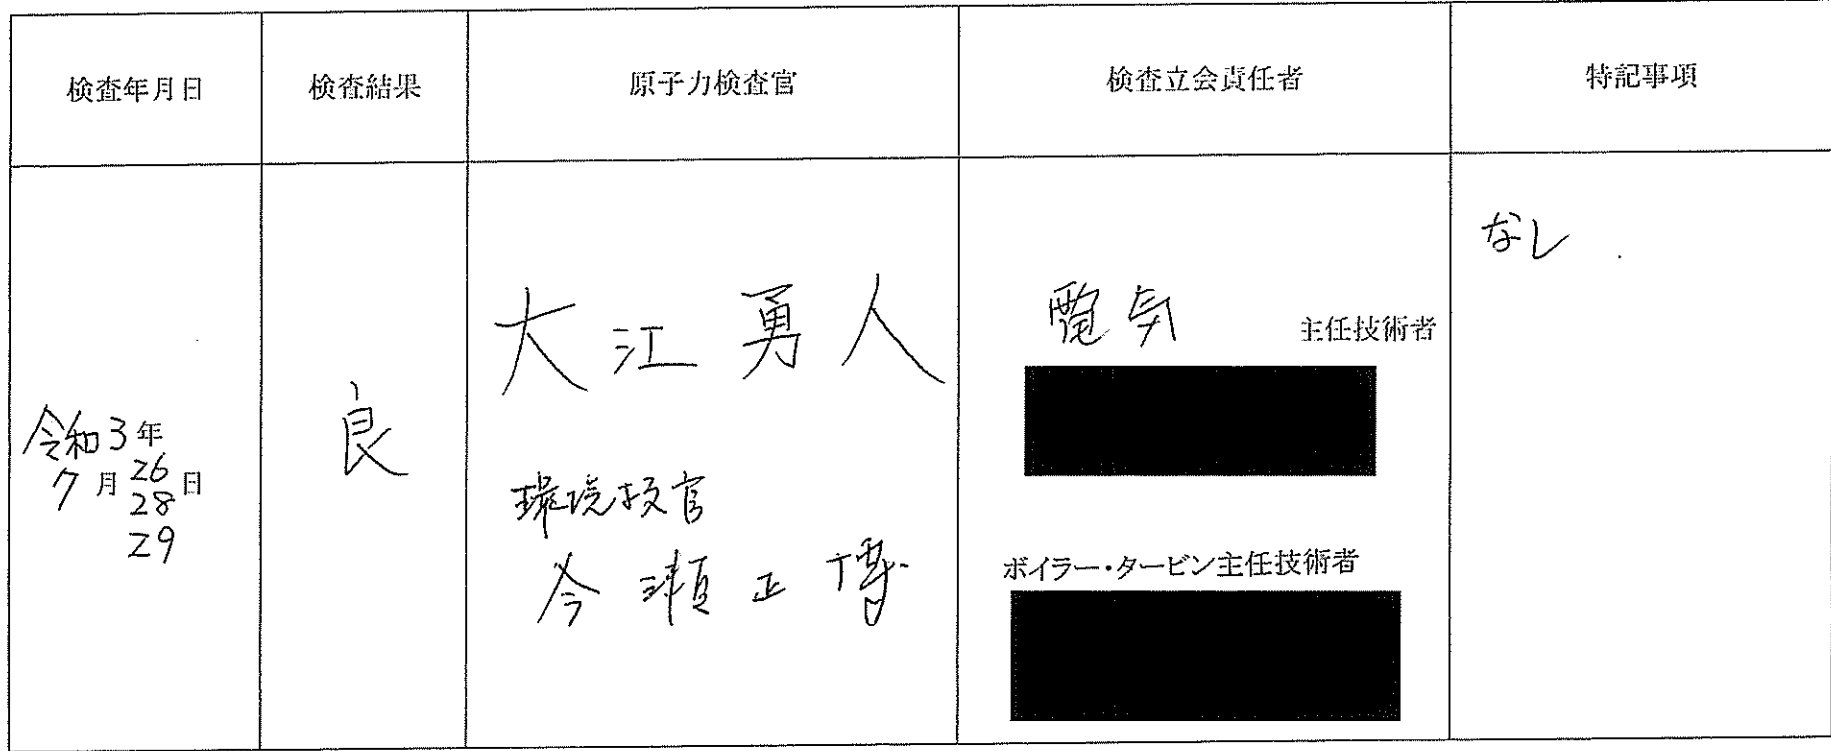 検査年月日
検査結果
原子力検査官
検査立会責任者
特記事項
令和3年
7月26日
28
29
良
大江勇人
環境技官
今瀬正博
電気 主任技術者
ボイラー・タービン主任技術者
なし